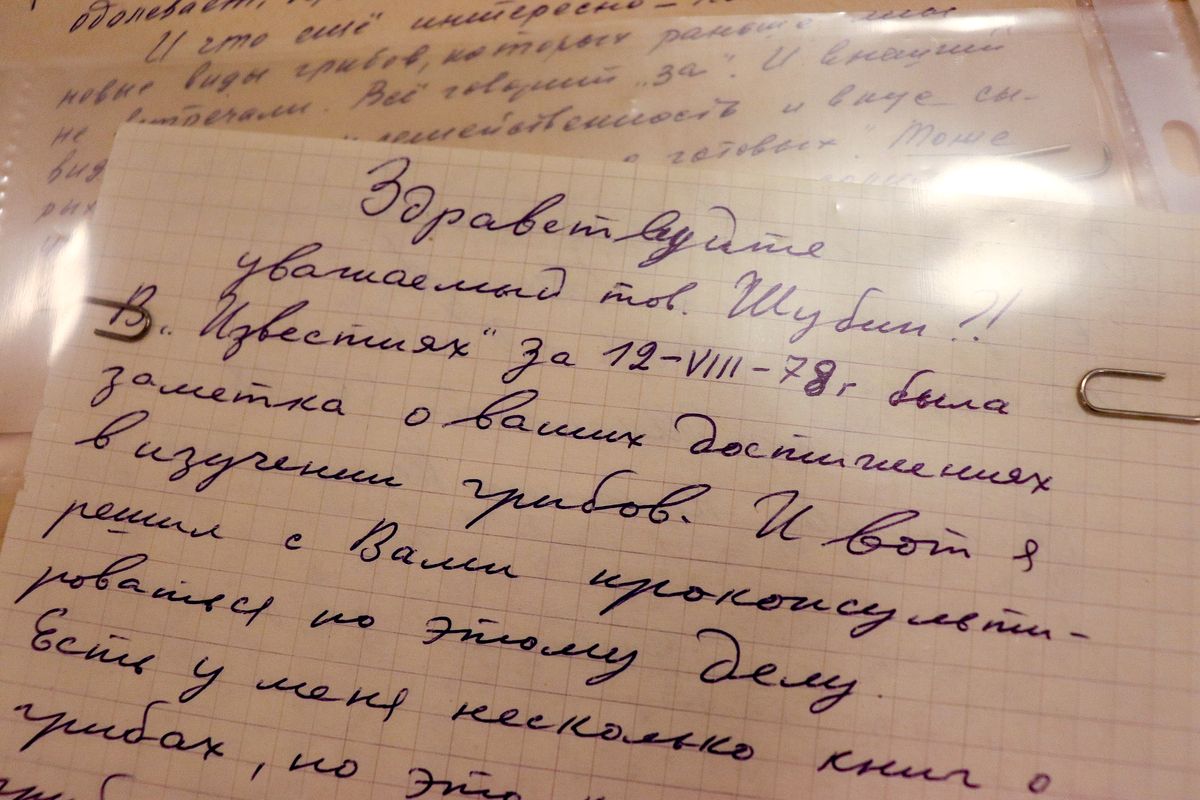 одолевает,
И что ещё интересно -
новые виды грибов, которых раньше мы
не встречали. Всё говорит „за". И внешний
вид семейственность и вкус сы-
рых готовых". Тоже
Здравствуйте
уважаемый тов. Шубин?!
В „Известиях" за 12-VIII-78г была
заметка о ваших достижениях
в изучении грибов. И вот я
решил с Вами проконсульти-
роваться по этому делу.
Есть у меня несколько книг о
грибах, но это